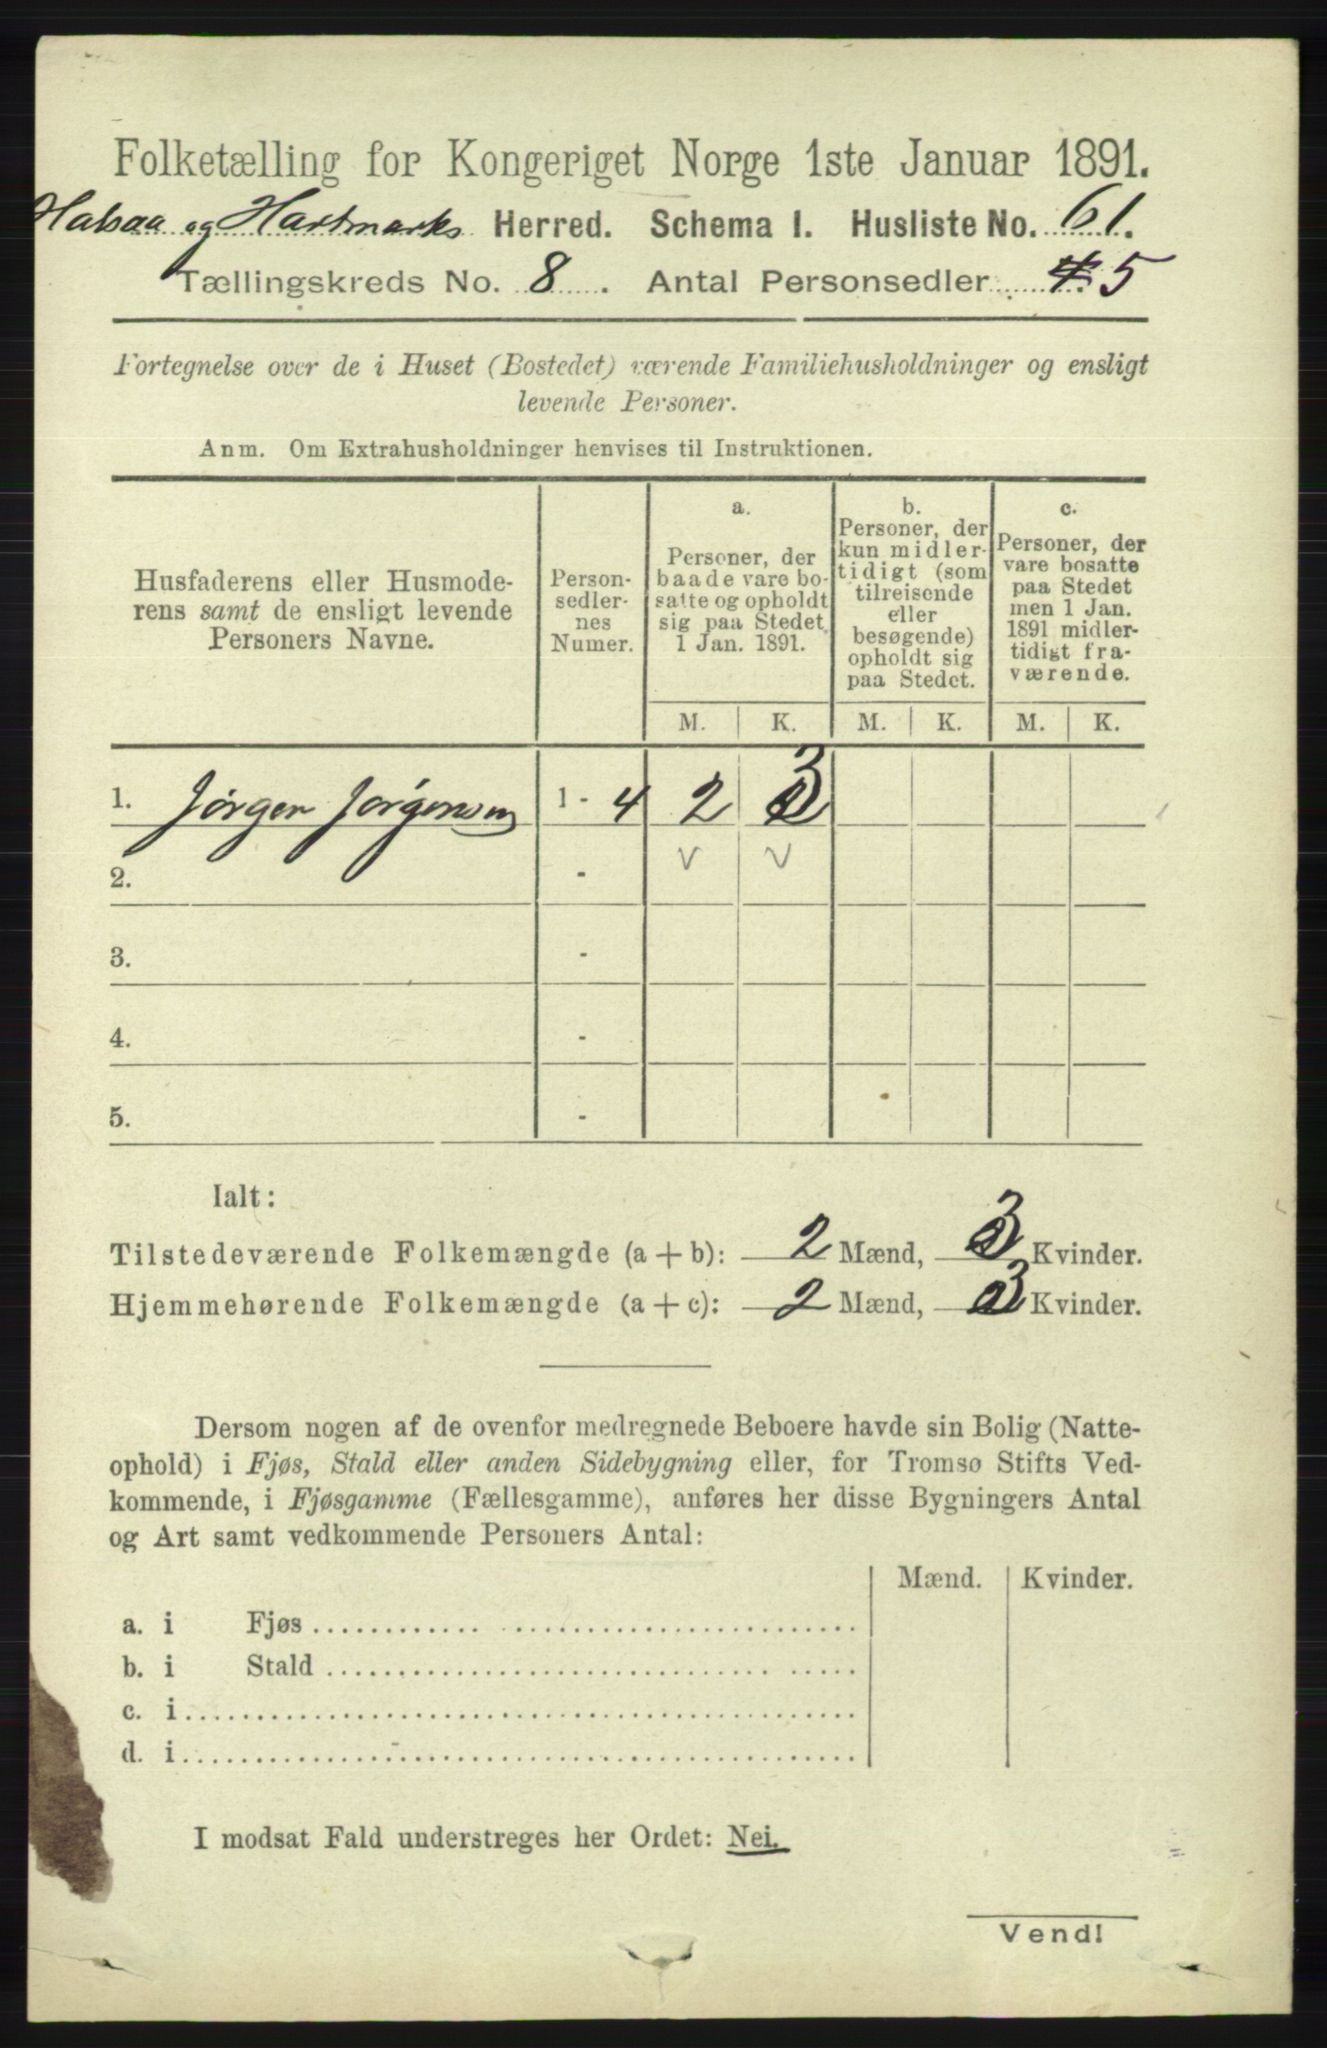 Folketælling for Kongeriget Norge 1ste Januar 1891.
Halsaa og Hartmarks Herred. Schema I. Husliste No. 61.
Tællingskreds No. 8. Antal Personsedler 4 5
Fortegnelse over de i Huset (Bostedet) værende Familiehusholdninger og ensligt
levende Personer.
Anm. Om Extrahusholdninger henvises til Instruktionen.
Husfaderens eller Husmode-
rens samt de ensligt levende
Personers Navne.
Person-
sedler-
nes
Numer.
a.
Personer, der
baade vare bo-
satte og opholdt
sig paa Stedet
1 Jan. 1891.
b.
Personer, der
kun midler-
tidigt (som
tilreisende
eller
besøgende)
opholdt sig
paa Stedet.
c.
Personer, der
vare bosatte
paa Stedet
men 1 Jan.
1891 midler-
tidigt fra-
værende.
M. K. M. K. M. K.
1. Jörgen Jörgensen 1 - 4 2 3
2. -
3. -
4. -
5. -
Ialt:
Tilstedeværende Folkemængde (a + b): 2 Mænd, 3 Kvinder.
Hjemmehørende Folkemængde (a + c): 2 Mænd, 3 Kvinder.
Dersom nogen af de ovenfor medregnede Beboere havde sin Bolig (Natte-
ophold) i Fjøs, Stald eller anden Sidebygning eller, for Tromsø Stifts Ved-
kommende, i Fjøsgamme (Fællesgamme), anføres her disse Bygningers Antal
og Art samt vedkommende Personers Antal:
Mænd. Kvinder.
a. i Fjøs
b. i Stald
c. i
d. i
I modsat Fald understreges her Ordet: Nei.
Vend!